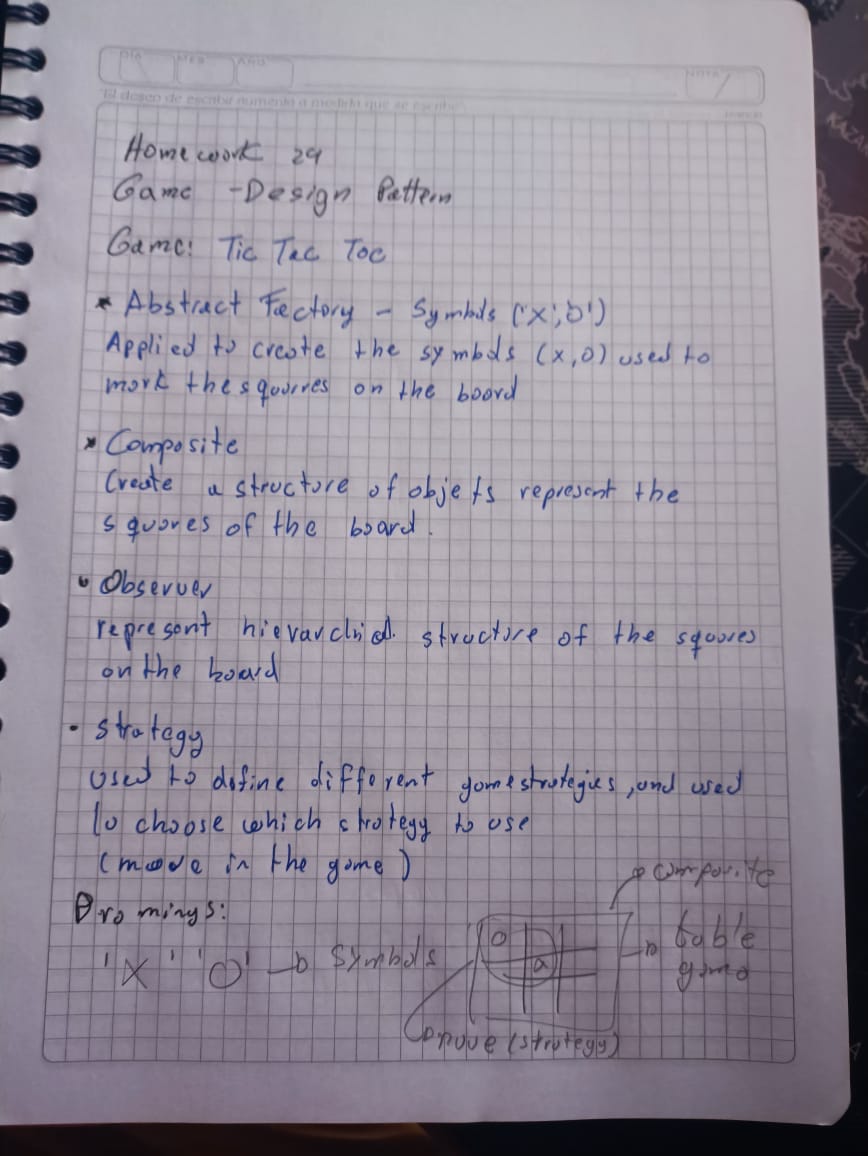 DIA MES AÑO NOTA
"El deseo de escribir aumenta a medida que se escribe"
Homework 29
Game -Design Pattern
Game: Tic Tac Toc
* Abstract Factory - Symbols ('X','O')
Applied to create the symbols (x,0) used to
mark the squares on the board
* Composite
Create a structure of objets represent the
squares of the board.
• Observer
represent hierarchical structure of the squares
on the board
• strategy
used to define different game strategies, and used
to choose which strategy to use
(move in the game)
composite
'X' 'O' → symbols
O
table
game
move (strategy)